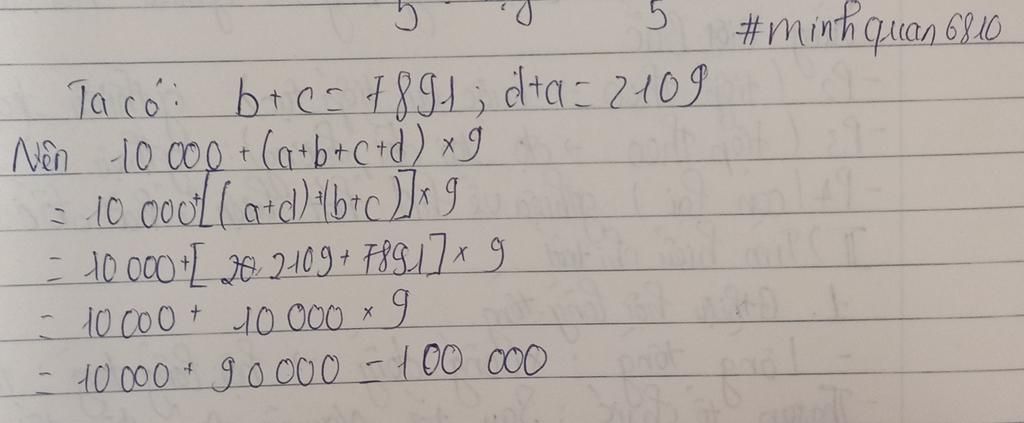 5 5
#minhquan6810
Ta có: b+c= 7891; d+a= 2109
Nên 10 000 + (a+b+c+d) × 9
= 10 000+[(a+d)+(b+c)]× 9
= 10 000+[ 2109+ 7891] × 9
= 10 000 + 10 000 × 9
= 10 000 + 90 000 = 100 000